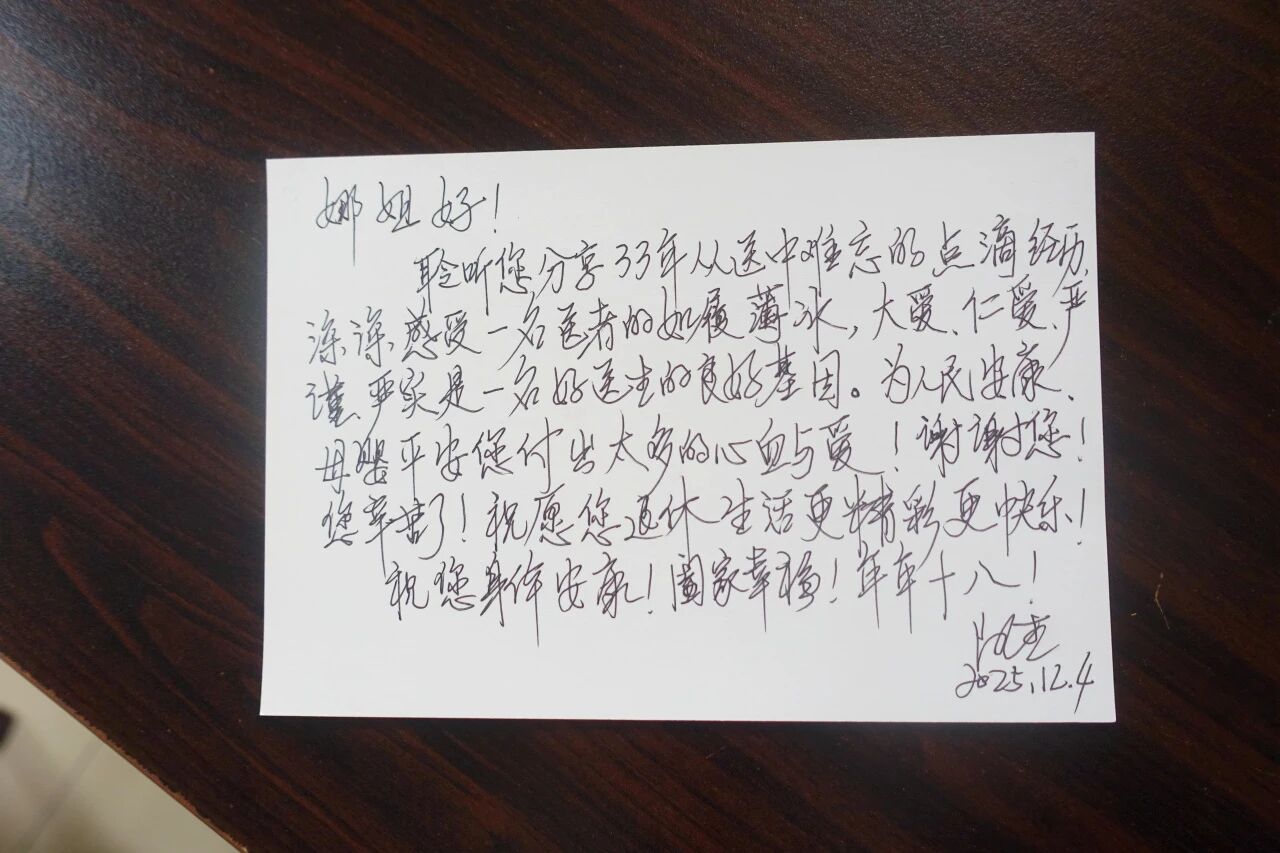 娜姐好！
聆听您分享33年从医中难忘的点滴经历,
深深感受一名医者的如履薄冰，大爱、仁爱、严
谨、严实是一名好医生的良好基因。为人民安康、
母婴平安您付出太多的心血与爱！谢谢您！
您辛苦了！祝愿您退休生活更精彩更快乐！
祝您身体安康！阖家幸福！年年十八！
2025.12.4